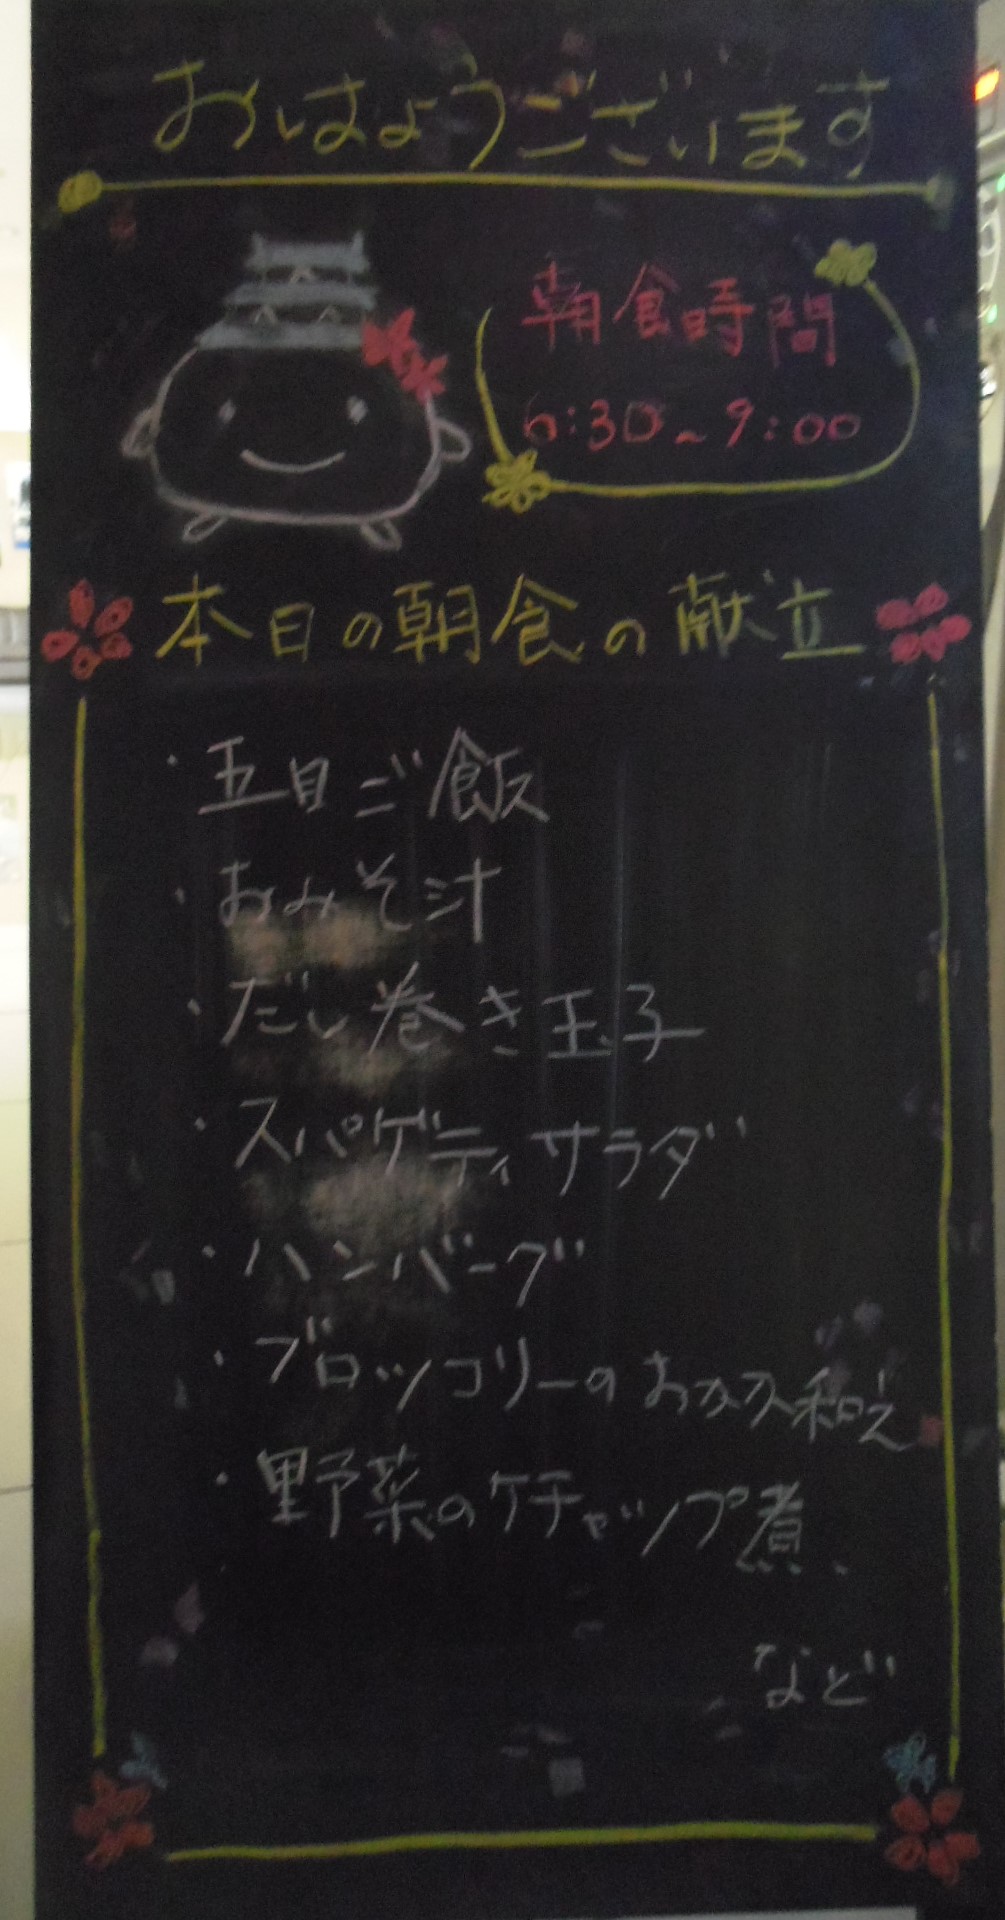 おはようございます
朝食時間
6:30~9:00
本日の朝食の献立
・五目ご飯
・おみそ汁
・だし巻き玉子
・スパゲティサラダ
・ハンバーグ
・ブロッコリーのおかか和え
・野菜のケチャップ煮
など